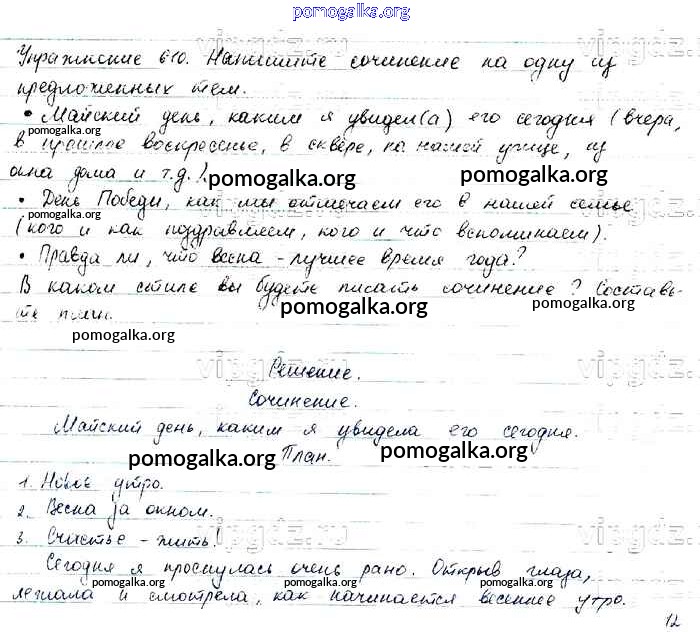 pomogalka.org
Упражнение 610. Напишите сочинение на одну из
предложенных тем.
• Майский день, каким я увидел(а) его сегодня (вчера,
pomogalka.org
в прошлое воскресенье, в сквере, на нашей улице, из
окна дома и т.д.).
pomogalka.org pomogalka.org
• День Победы, как мы отмечаем его в нашей семье
pomogalka.org
(кого и как поздравляем, кого и что вспоминаем).
• Правда ли, что весна - лучшее время года?
В каком стиле вы будете писать сочинение? Составь-
те план.
pomogalka.org pomogalka.org
pomogalka.org
vipgdz.ru vipgdz.ru
Решение.
Сочинение.
Майский день, каким я увидела его сегодня.
pomogalka.org План. pomogalka.org
1. Новое утро.
2. Весна за окном.
3. Счастье - жить!
Сегодня я проснулась очень рано. Открыв глаза,
pomogalka.org pomogalka.org pomogalka.org
лежала и смотрела, как начинается весеннее утро.
12